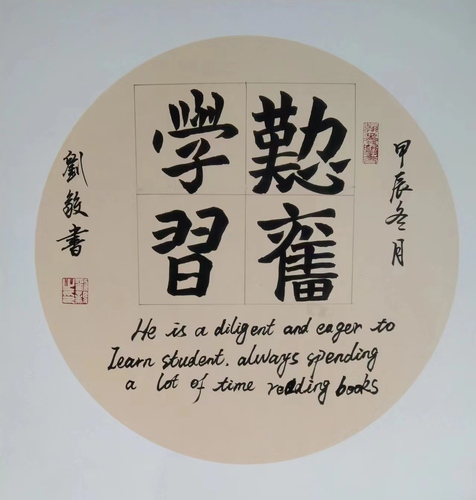 甲辰冬月
懃奮
學習
劉敬書
He is a diligent and eager to
learn student. always spending
a lot of time reading books